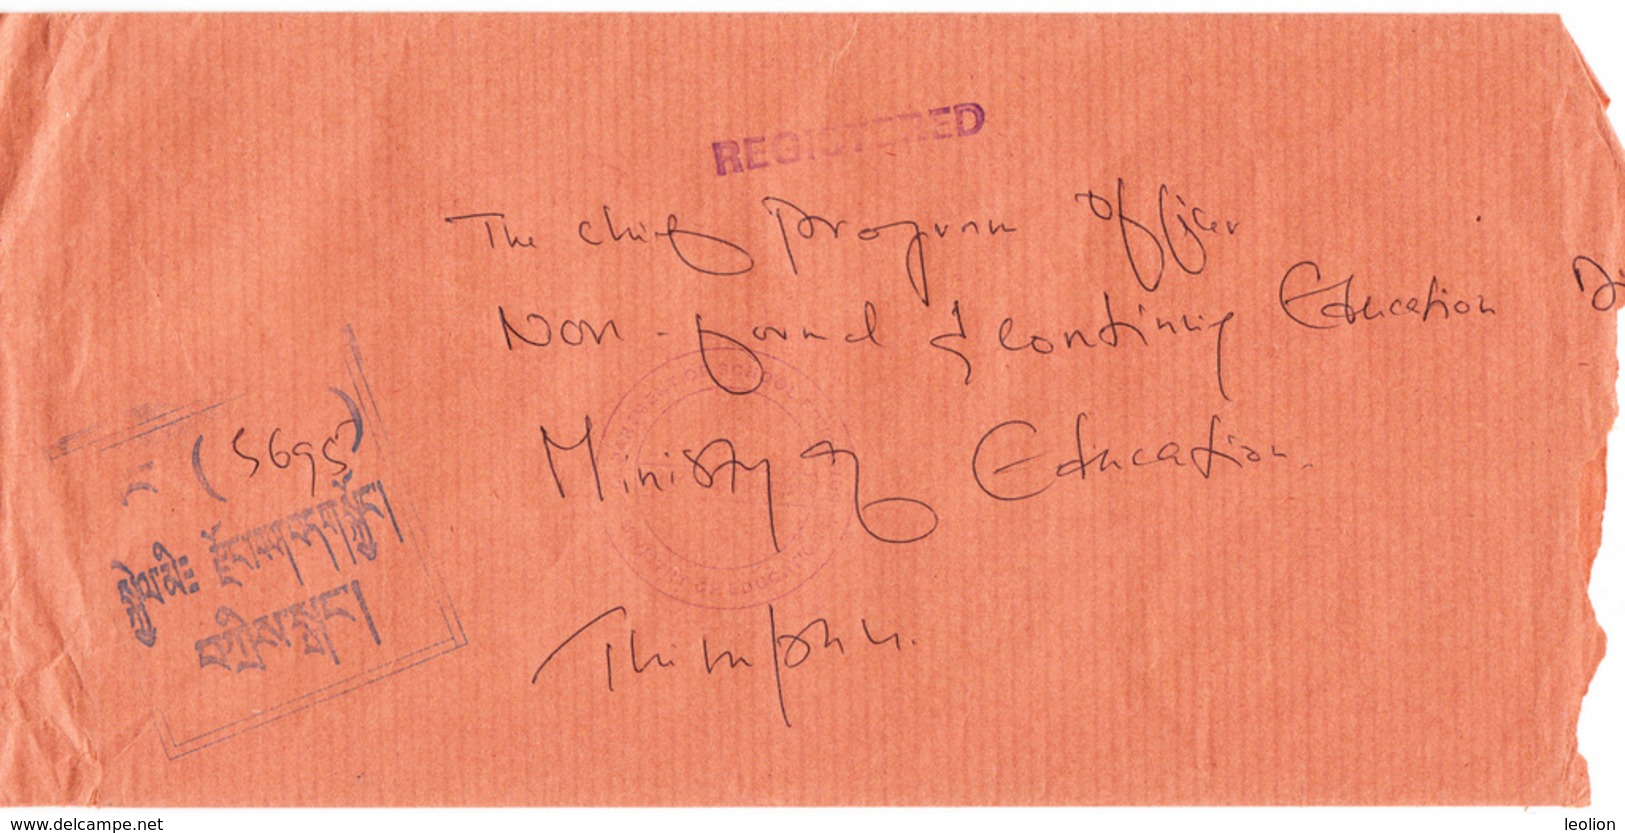 REGISTERED
The Chief Program Officer
Non-formal & Continuing Education Di
Ministry of Education.
Thimphu.
(5695)
www.delcampe.net
leolion